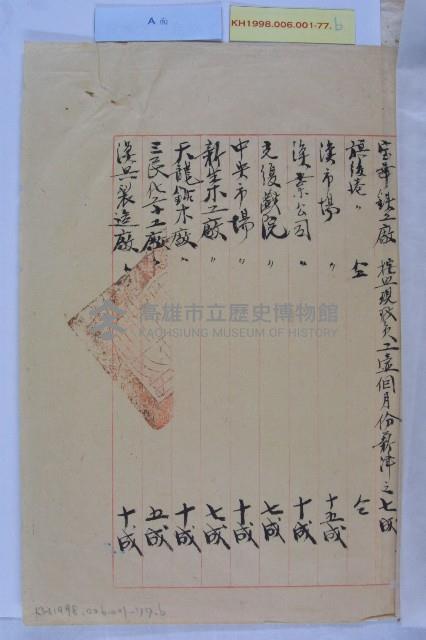 A面
KH1998.006.001-77.b
鉄工廠 按照現歿員工壹個月份薪津之七成
旗後 〃 仝 仝
漁市場 〃 十五成
漁業公司 〃 十成
光復戲院 〃 七成
中央市場 〃 十成
新生木工廠 〃 七成
天龍鋸木廠 〃 十成
三民化工廠 〃 五成
漢興製造廠 〃 十成
高雄市立歷史博物館
KAOHSIUNG MUSEUM OF HISTORY
KH1998.006.001-77.b